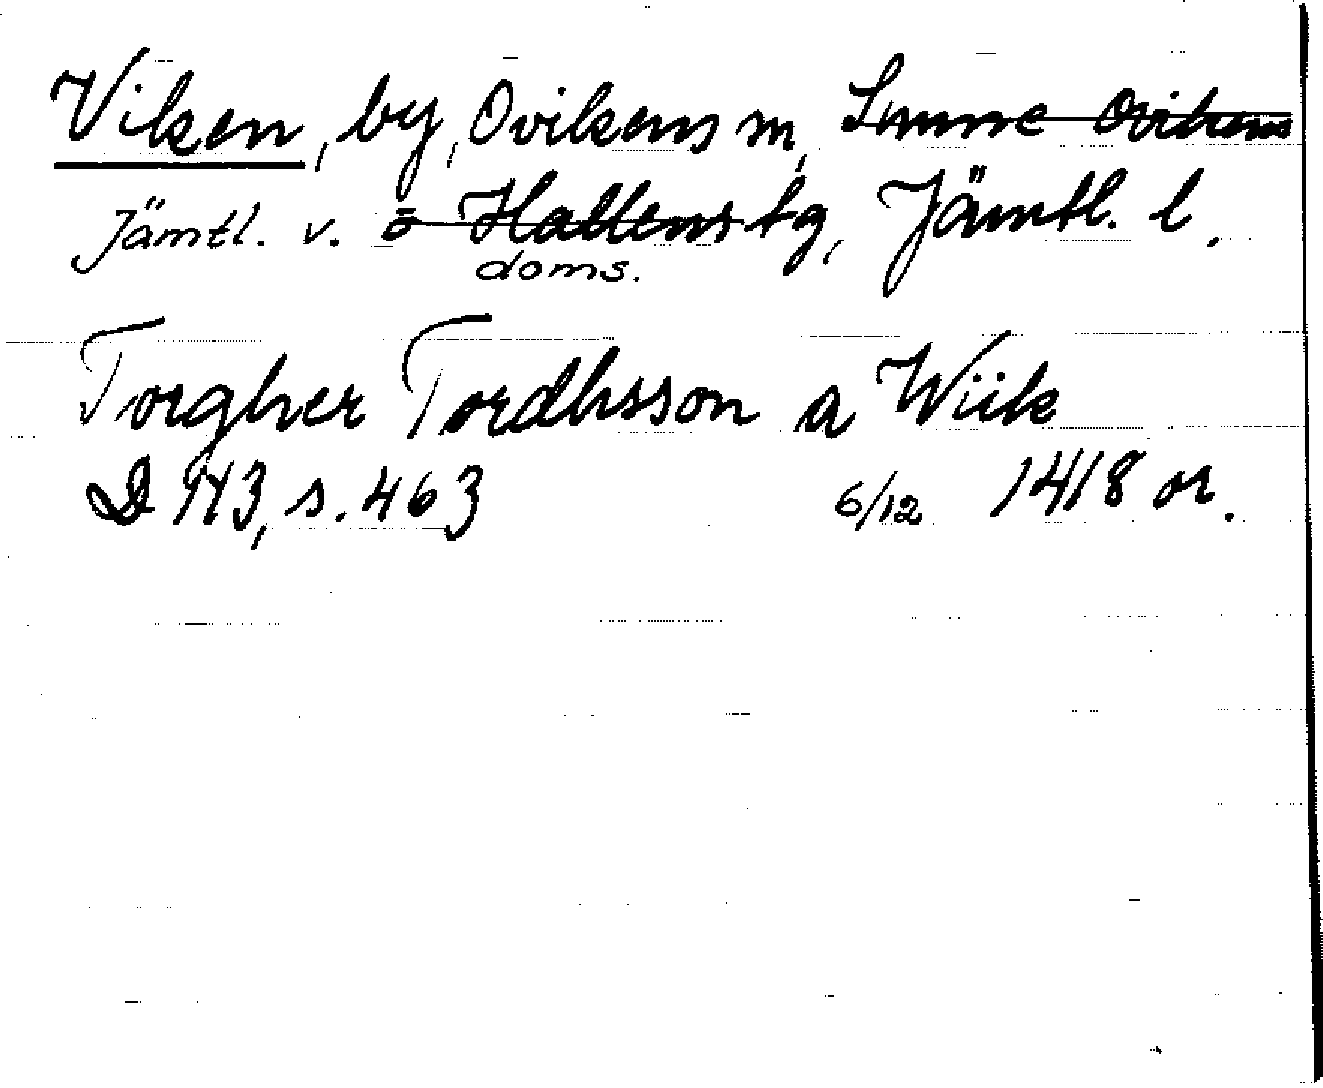 Viken, by, Ovikens sn, Sunne Ovikens
Jämtl. v. ö Hallens tg, Jämtl. l.
doms.
Torgher Tordhsson a Wiik
D 143, s. 463 6/12 1418 or.